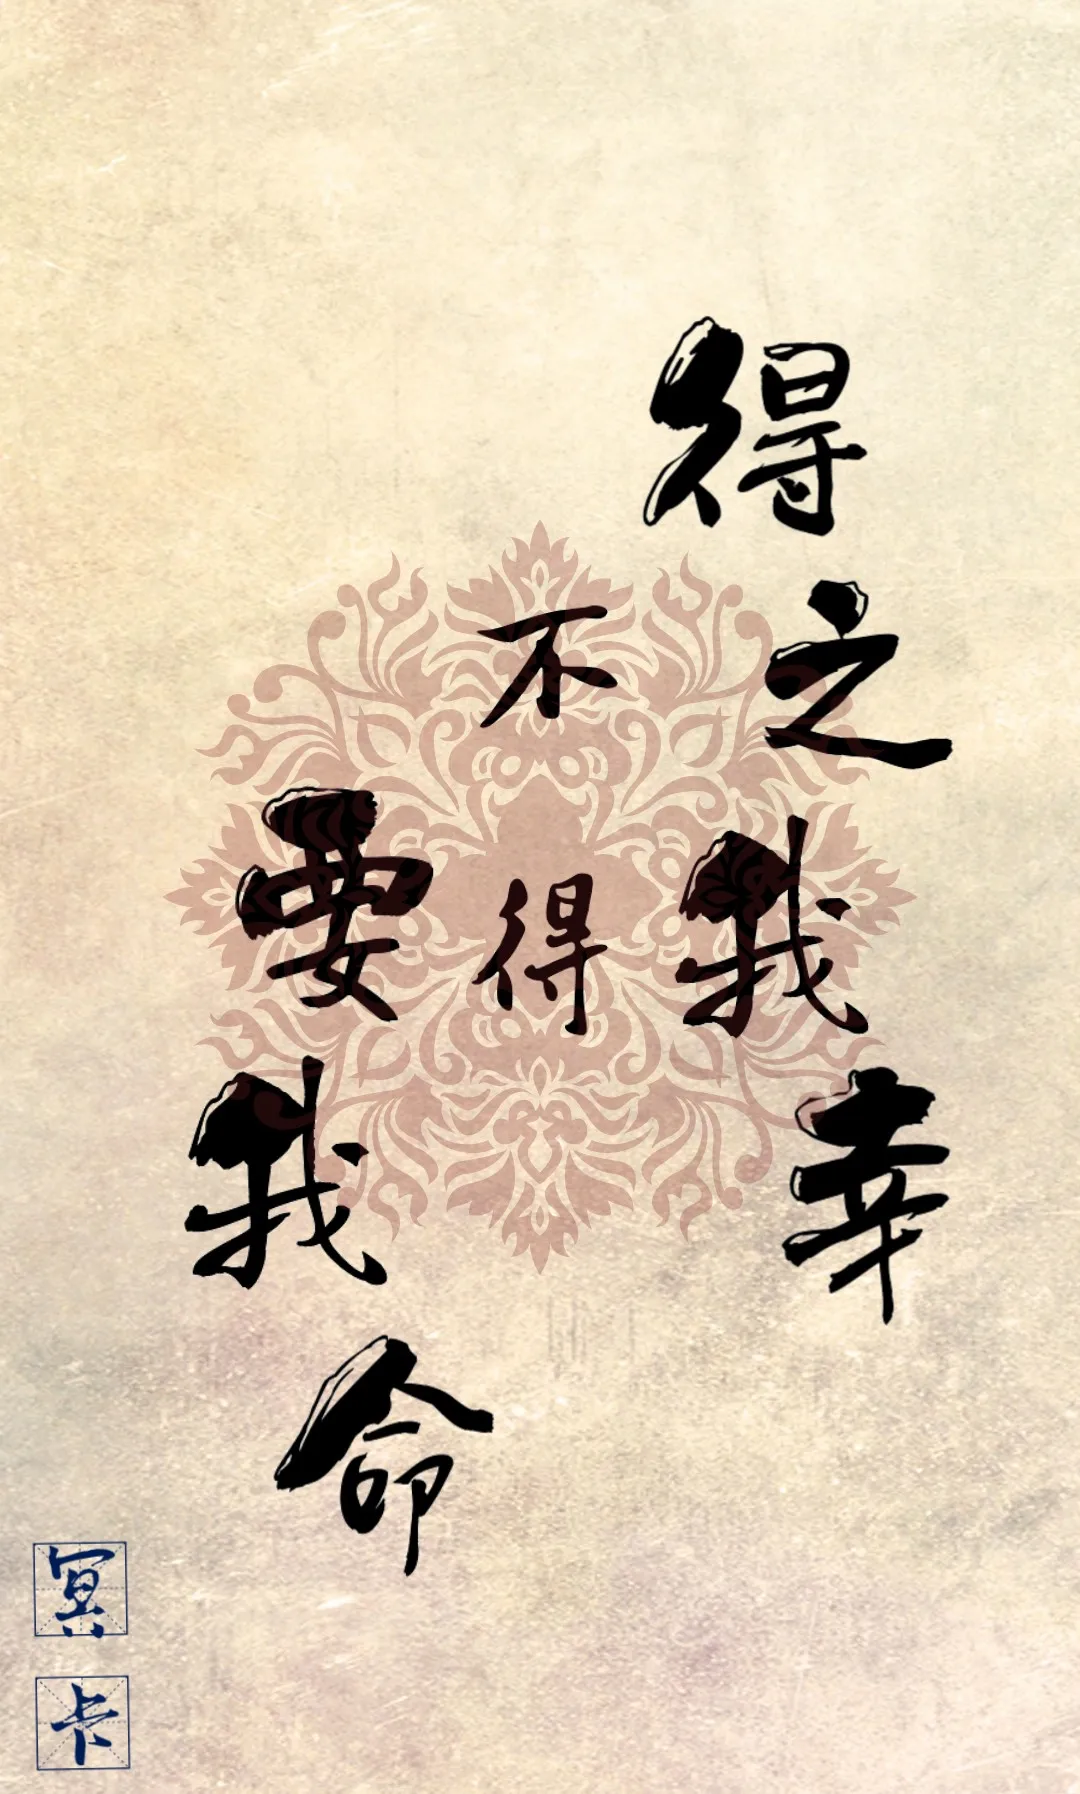 得之我幸
不得
要我命
冥卡